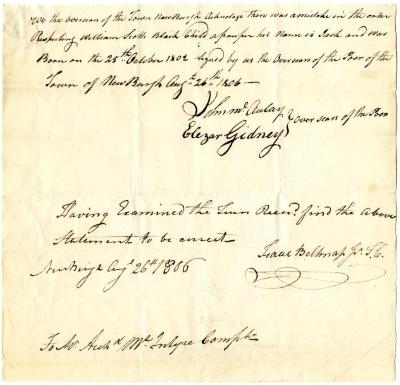 We the overseers of the Town NewBurgh Acknolage there was a mistake in the order
Respecting William Scott Black Child a pauper his Name is Jack and was
Born on the 25th October 1802 signed by us the Overseers of the Poor of the
Town of NewBurgh Augt 26th 1806 —
John McAulay
Elezar Gidney } Overseers of the Poor
Having Examined the Town Records find the Above
Statement to be correct
Newburgh Augt 26th 1806
Isaac Belknap Jr. T. C.
To Mr Archd McIntyre Compt